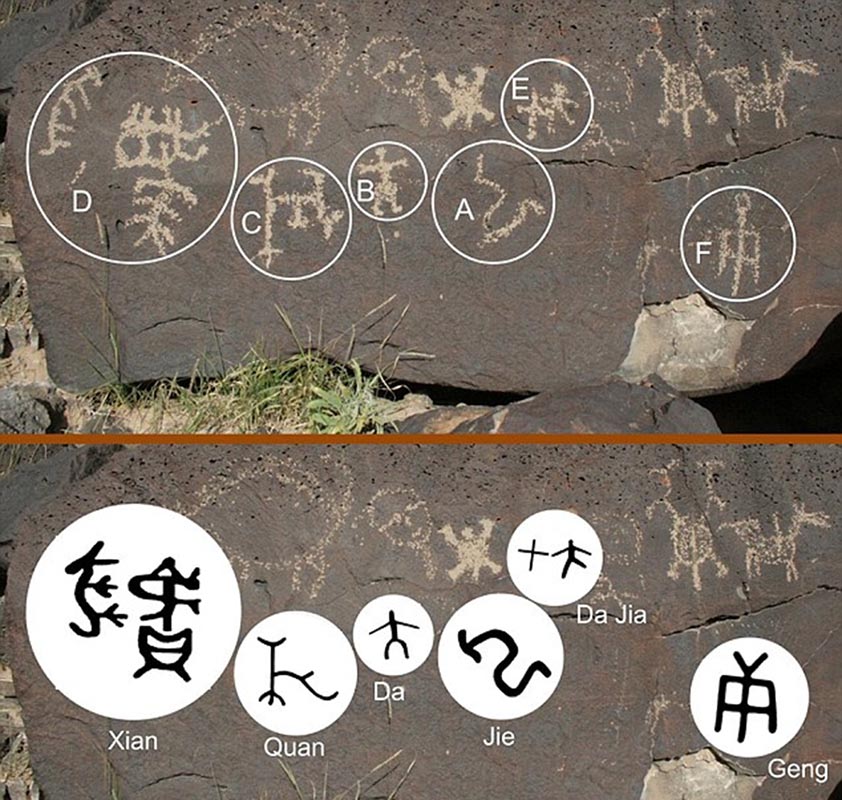 E
D
B
C
A
F
Da Jia
Da
Xian
Quan
Jie
Geng